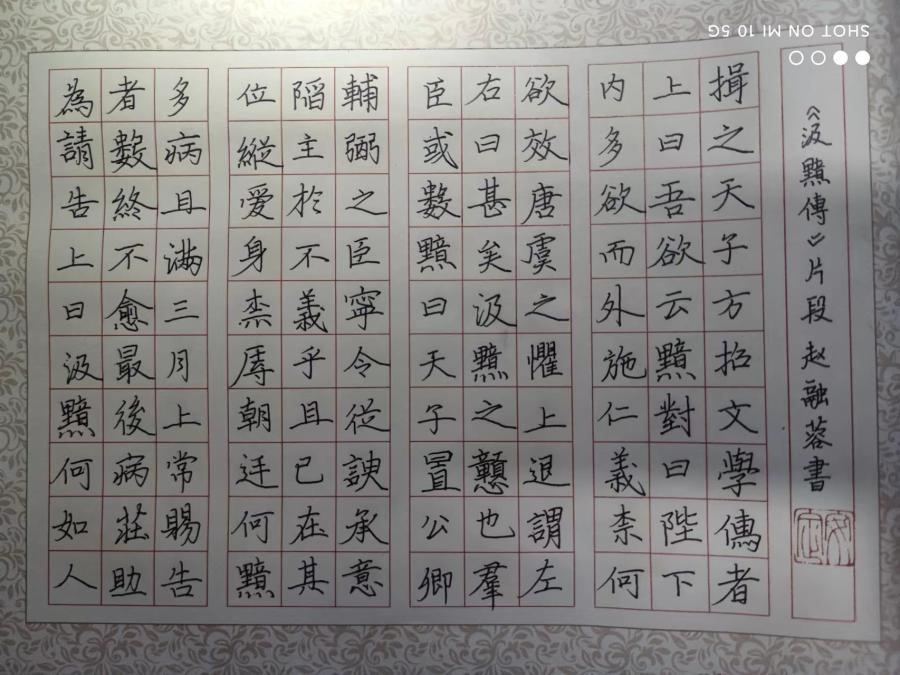 《汲黯傳》片段 赵融蓉書
揖之天子方招文學儒者
上曰吾欲云黯對曰陛下
内多欲而外施仁義柰何
欲效唐虞之懼上退謂左
右曰甚矣汲黯之戇也羣
臣或數黯曰天子置公卿
輔弼之臣寧令從諛承意
陷主於不義乎且已在其
位縱愛身柰辱朝廷何黯
多病且滿三月上常賜告
者數終不愈最後病莊助
為請告上曰汲黯何如人
SHOT ON MI 10 5G